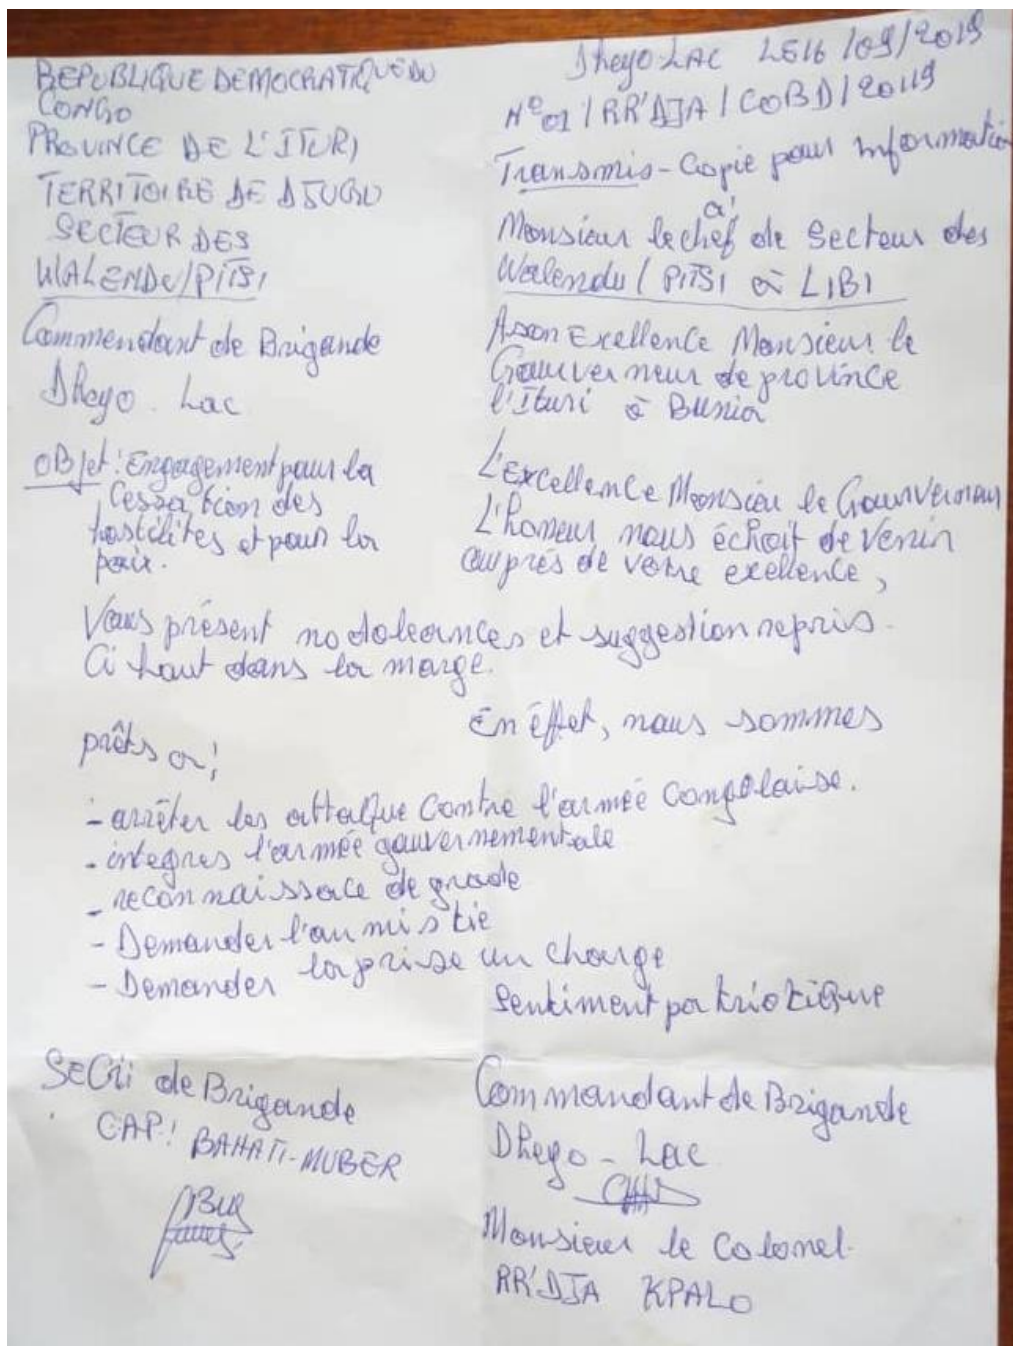 REPUBLIQUE DEMOCRATIQUE DU
CONGO
PROVINCE DE L'ITURI
TERRITOIRE DE DJUGU
SECTEUR DES
WALENDU/PITSI
Commendant de Brigande
Dheyo. Lac
OBJet: Engagement pour la
Cessation des
hostilités et pour la
paix.
Dheyo-LAC LE16 /09/2019
N°01/RR'DJA/COBD/2019
Transmis-Copie pour information
à
Monsieur le chef de Secteur des
Walendu/PITSI à LIBI
A son Excellence Monsieur le
Gouverneur de province
l'Ituri à Bunia
L'Excellence Monsieur le Gouverneur
L'honeur nous échoit de venir
auprés de votre exellence,
Vous présent nos doleances et suggestion repris.
Ci haut dans la marge.
En éffet, nous sommes
prêts à;
- arrêter les attaque contre l'armée Congolaise.
- integres l'armée gouvernementale
- reconnaissace de grade
- Demander l'aumistie
- Demander la prise un charge
Sentiment patriotique
SeCrii de Brigande
CAP! BAHATI-MUBER
Commandant de Brigande
Dheyo-Lac
Monsieur le Colonel.
RR'DJA KPALO